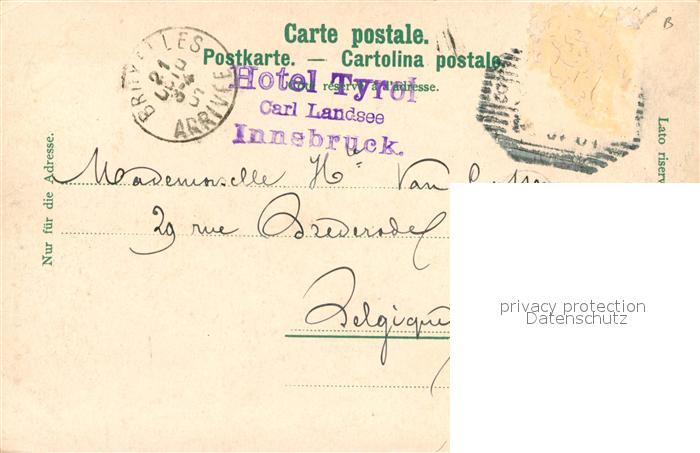 Carte postale.
Postkarte. — Cartolina postale.
Côté réservé à l'adresse.
BRUXELLES
21
ARRIVÉE
Hotel Tyrol
Carl Landsee
Innsbruck.
Nur für die Adresse.
Lato riserv
Mademoiselle Hte Van
29 rue Bréderode
Belgique
privacy protection
Datenschutz
B